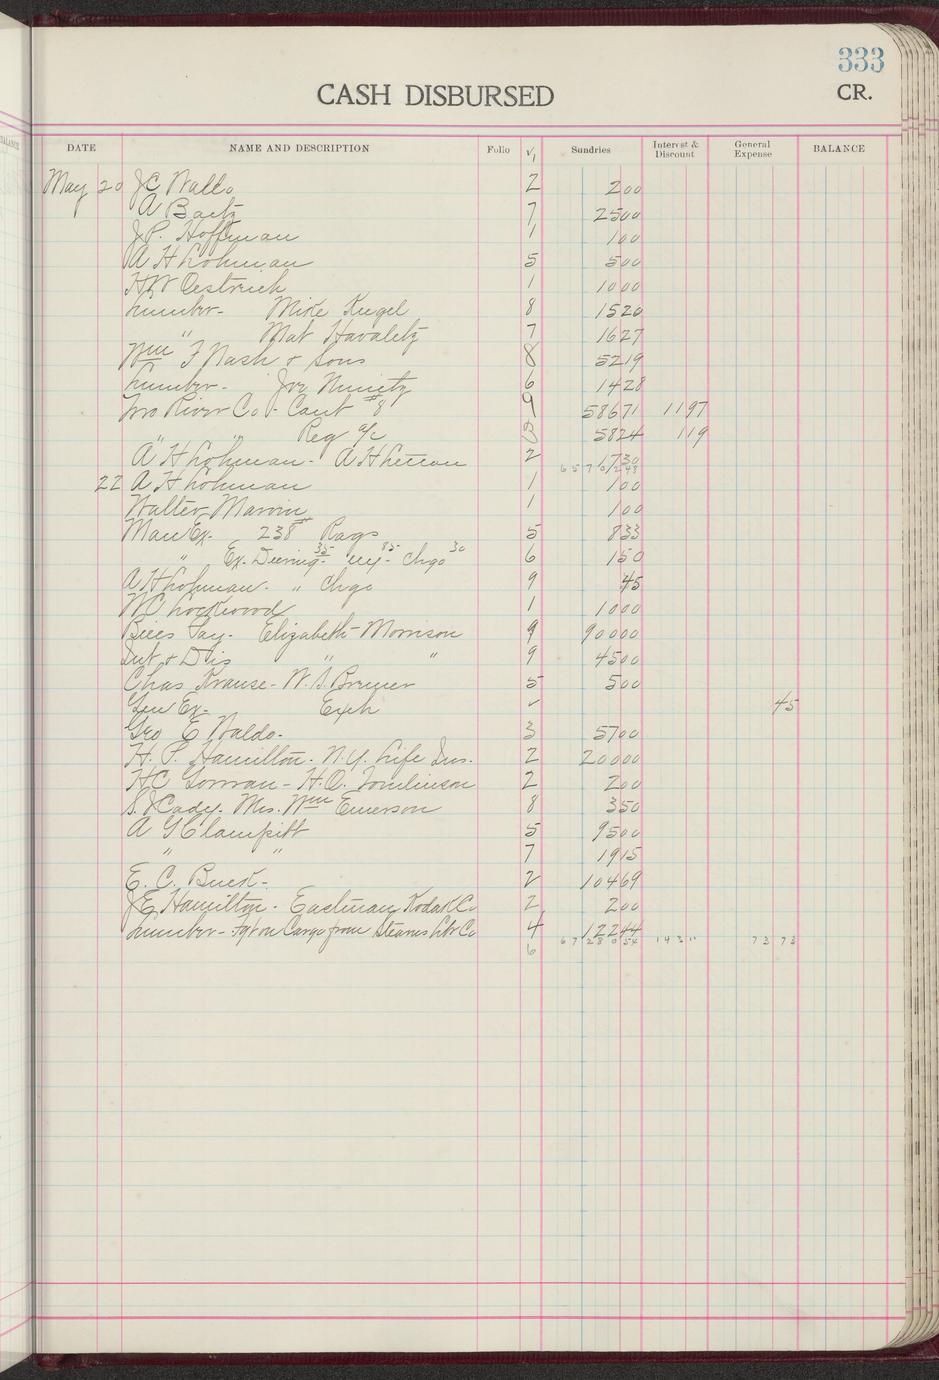 333
CASH DISBURSED CR.
DATE NAME AND DESCRIPTION Folio √ Sundries Interest & Discount General Expense BALANCE
May 20 J C Walls 2 2 00
A Bartz 7 25 00
J. P. Hoffman 1 1 00
A H Lohman 5 5 00
H W Oestreich 1 10 00
Lumber - Mike Kugel 8 15 20
" Mat Havaletz 7 16 27
Wm F Nash & Sons 8 52 19
Lumber - Joe 6 14 28
River Co - Cont #8 9 586 71 11 97
" " Reg a/c 3 58 24 1 19
A H Lohman - A H 2 17 30
6570 248
22 A H Lohman 1 1 00
Walter Marvin 1 1 00
Man Ex - 238# Rags 5 8 33
" Ex. Deering 35 - " 85 - Chgo 30 6 1 50
A H Lohman - " Chgo 9 45
W C Lockwood 1 10 00
Bills Pay - Elizabeth Morrison 9 900 00
Int & Dis " " 9 45 00
Chas Krause - W. S. Bremer 5 5 00
Gen Ex - Exch ✓ 45
Geo E Waldo - 3 57 00
H. P. Hamilton - N.Y. Life Ins. 2 200 00
H C Gorman - H. O. Tomlinson 2 2 00
S. J Cady - Mrs. Wm Emerson 8 3 50
A G Clampitt 5 95 00
" " 7 19 15
E. C. Buck - 2 104 69
J E Hamilton - Eastman Kodak Co 2 2 00
Lumber - Fgt on Cargo from Stearns Lbr Co 4 122 44
6 67280 54 143 " 73 73